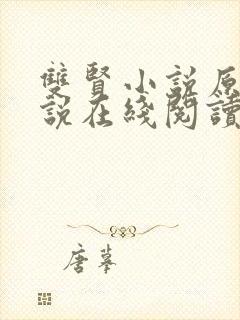 雙賢小說原
說在綫閱讀
唐摹